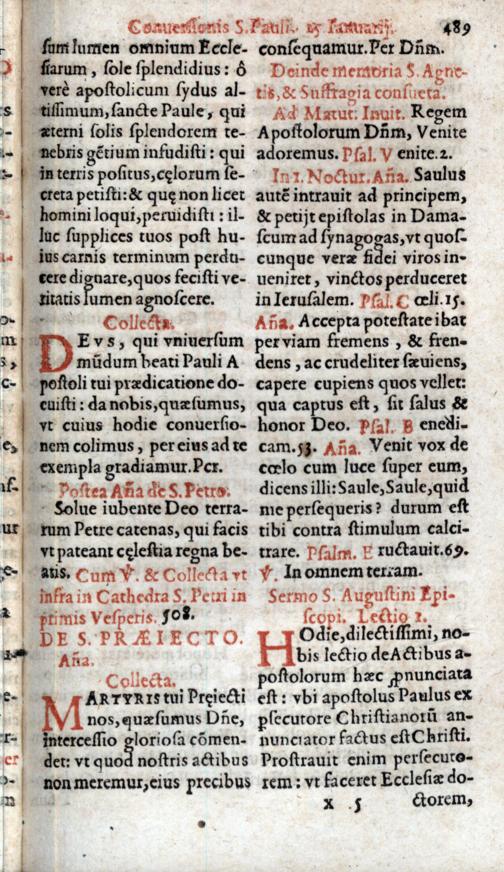 Conuersionis S. Pauli. 25 Ianuarij. 489
sum lumen omnium Eccle-
siarum, sole splendidius: ô
verè apostolicum sydus al-
tissimum, sancte Paule, qui
æterni solis splendorem te-
nebris gẽtium infudisti: qui
in terris positus, cęlorum se-
creta petisti: & quę non licet
homini loqui, peruidisti: il-
luc supplices tuos post hu-
ius carnis terminum perdu-
cere dignare, quos fecisti ve-
ritatis lumen agnoscere.
Collecta.
DEVS, qui vniuersum
mũdum beati Pauli A
postoli tui prædicatione do-
cuisti: da nobis, quæsumus,
vt cuius hodie conuersio-
nem colimus, per eius ad te
exempla gradiamur. Per.
Postea Aña de S. Petro.
Solue iubente Deo terra-
rum Petre catenas, qui facis
vt pateant cęlestia regna be-
atis. Cum ℣. & Collecta vt
infra in Cathedra S. Petri in
primis Vesperis. 508.
DE S. PRÆIECTO.
Aña.
Collecta.
MARTYRIS tui Pręiecti
nos, quæsumus Dñe,
intercessio gloriosa cõmen-
det: vt quod nostris actibus
non meremur, eius precibus
consequamur. Per Dñm.
Deinde memoria S. Agne-
tis, & Suffragia consueta.
Ad Matut. Inuit. Regem
Apostolorum Dñm, Venite
adoremus. Psal. V enite. 2.
In 1. Noctur. Aña. Saulus
autẽ intrauit ad principem,
& petijt epistolas in Dama-
scum ad synagogas, vt quos-
cunque veræ fidei viros in-
ueniret, vinctos perduceret
in Ierusalem. Psal. C œli. 15.
Aña. Accepta potestate ibat
per viam fremens, & fren-
dens, ac crudeliter sæuiens,
capere cupiens quos vellet:
qua captus est, sit salus &
honor Deo. Psal. B enedi-
cam. 53. Aña. Venit vox de
cœlo cum luce super eum,
dicens illi: Saule, Saule, quid
me persequeris? durum est
tibi contra stimulum calci-
trare. Psalm. E ructauit. 69.
℣. In omnem terram.
Sermo S. Augustini Epi-
scopi. Lectio 1.
HOdie, dilectissimi, no-
bis lectio de Actibus a-
postolorum hæc ꝓnunciata
est: vbi apostolus Paulus ex
ꝑsecutore Christianorũ an-
nunciator factus est Christi.
Prostrauit enim persecuto-
rem: vt faceret Ecclesiæ do-
x 5 ctorem,